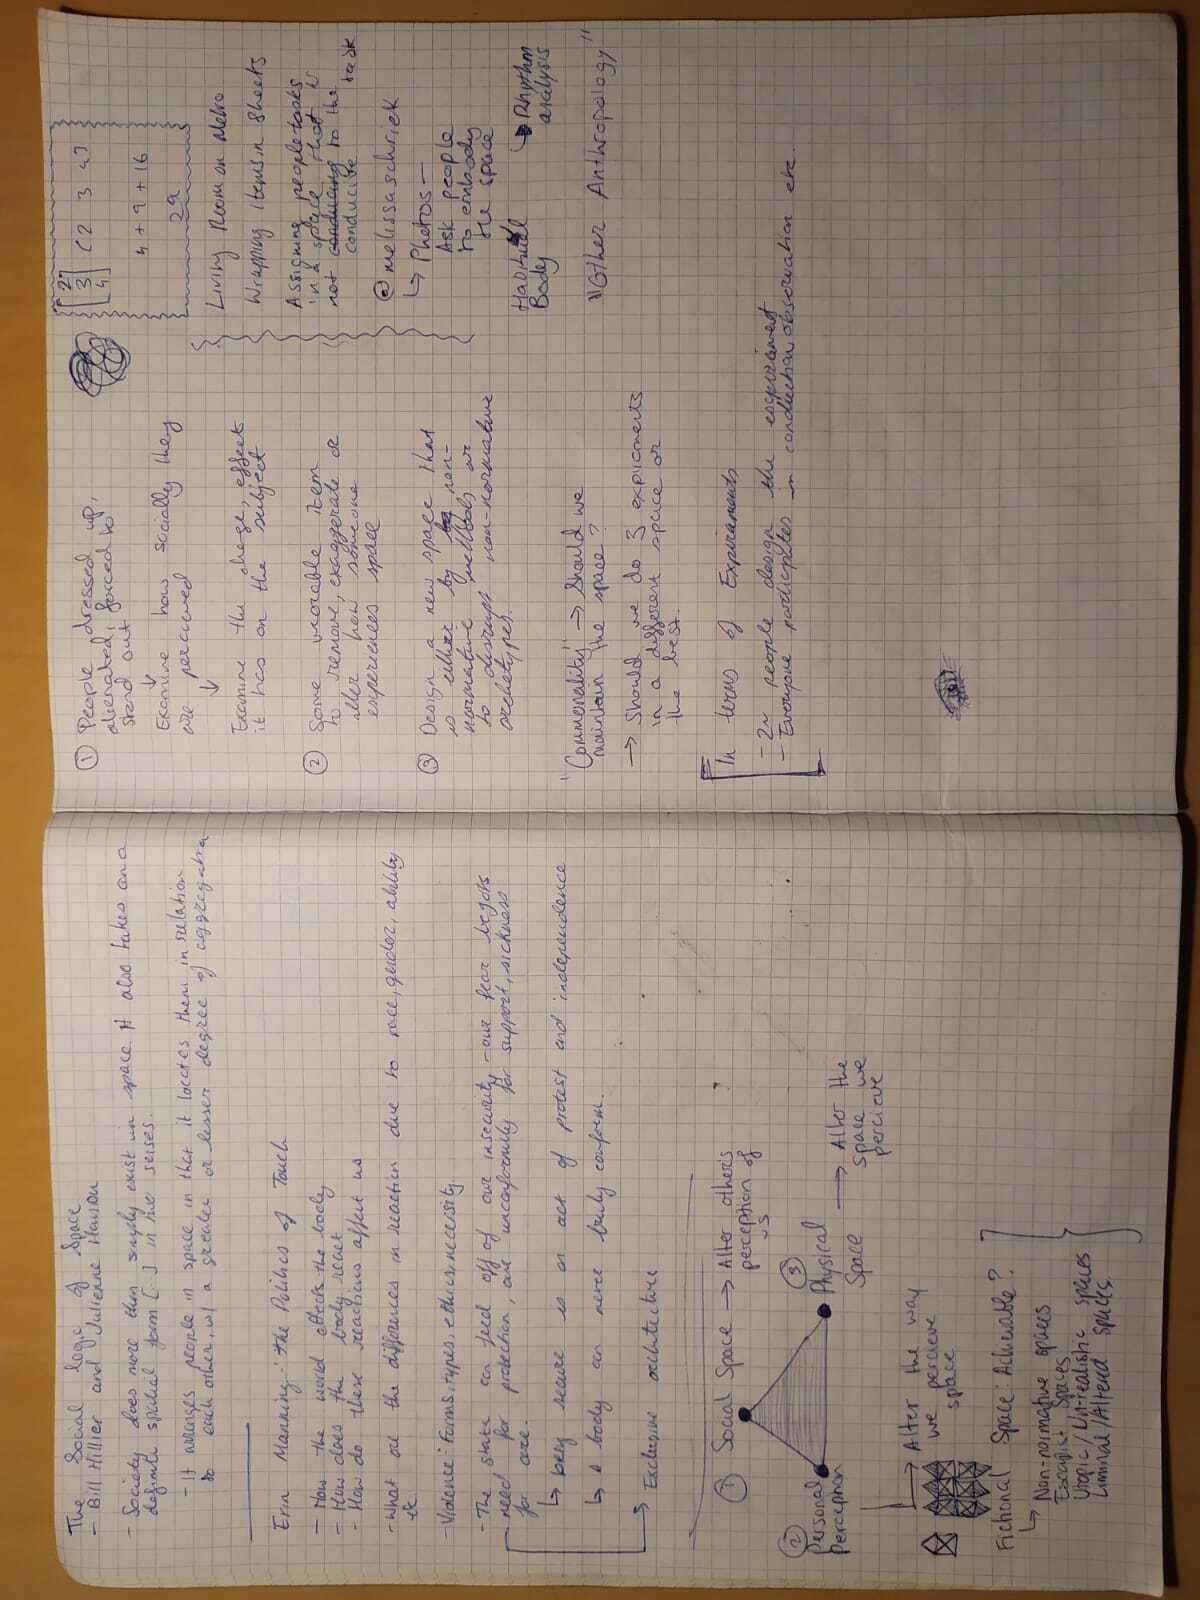 The Social logic of Space
- Bill Hillier and Julienne Hanson
- Society does more then simply exist in space. It also takes on a
definite spatial form [..] in two senses.
- It arranges people in space in that it locates them in relation
to each other, w/ a greater or lesser degree of aggregation
Erin Manning: the Politics of Touch
- How the world effects the body
- How does the body react
- How do these reactions affect us
- What are the differences in reaction due to race, gender, ability
etc.
- Violence: Forms, types, ethics, necersity.
- The state can feed off of our insecurity - our fear begets
need for protection, our unconformity for support, sickness
for care.
↳ being secure is an act of protest and independence
↳ A body can never truly conform.
→ Exclusive architecture
① Social Space → Alter other's
perception of
us
②
Personal
Perception
③
Physical
Space
→ Alter the
space we
percieve
→ Alter the way
we percieve
space
Fictional Space: Achievable?
↳ Non-normative spaces
Escapist Spaces
Utopic / Un-realistic spaces
Liminal / Altered spaces.
① People dressed up,
alienated, forced to
stand out
↓
Examine how socially they
are percieved
↓
Examine the change, effect
it has on the subject
② Some wearable item
to remove, exaggerate or
alter how someone
experiences space
③ Design a new space that
is either by non-
normative methods or
to disrupt non-normative
archetypes.
"Commonality" → Should we
maintain the space?
→ Should we do 3 expiraments
in a different space or
the best.
In terms of Expiraments
- 2~ people design the expirament
- Everyone participates in conduction observation etc.
[2
3
4] (2 3 4)
4 + 9 + 16
29
Living Room on Metro
Wrapping items in Sheets
Assigning people tasks
in a space that is
not conducing to the
conducive task
@melissaschriek
↳ Photos -
Ask people
to embody
the space
Habitual
Body
↳ Rhythm
analysis
"Other Anthropology"